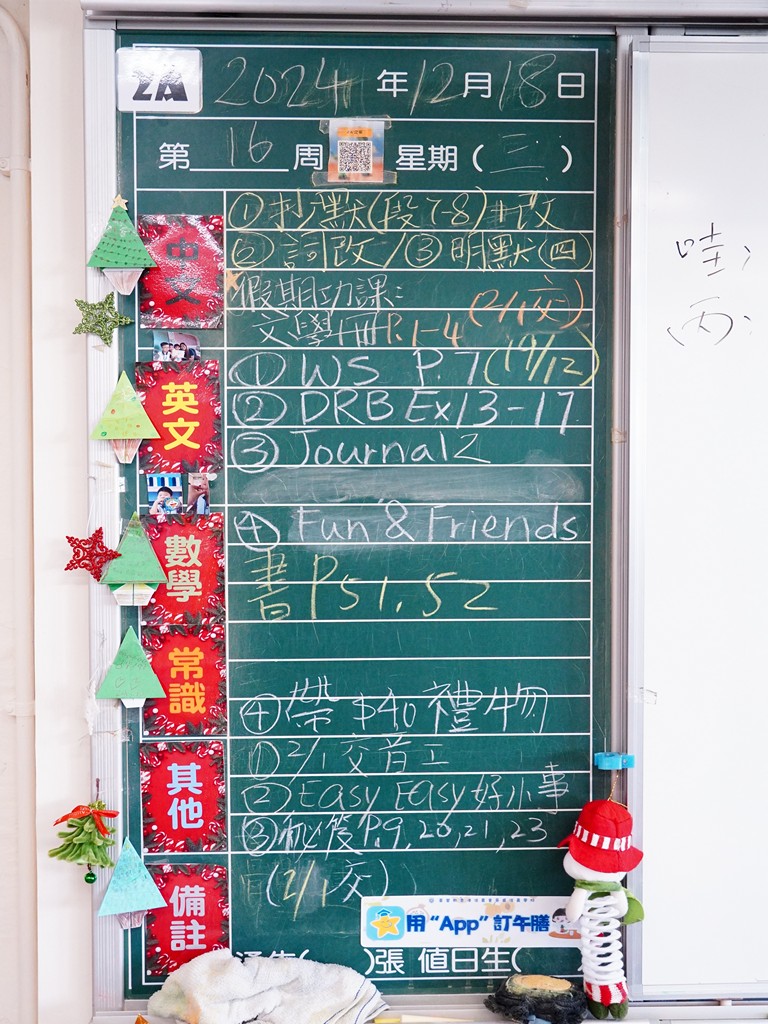 2A
2024 年 12 月 18 日
第 16 周 星期 ( 三 )
中文
① 抄默(段7-8)+改
② 詞改/③ 明默(四)
假期功課:
文學冊P.1-4 (2/1交)
英文
① WS P.7 (19/12)
② DRB Ex13-17
③ Journal 2
④ Fun & Friends
數學
書 P51.52
常識
④ 帶 $40 禮物
其他
① 2/1 交首工
② Easy Easy 好小事
③ P.9, 20, 21, 23
備註
(2/1交)
用 "App" 訂午膳
)張 值日生(
哇
(丙)